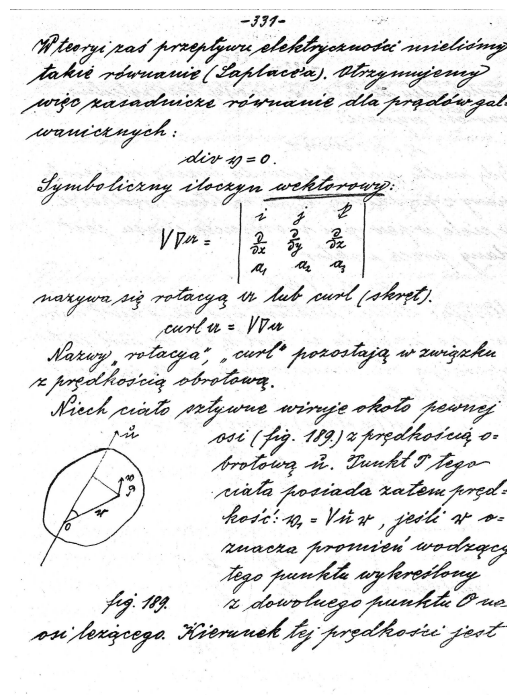 -331-
W teoryi zaś przepływu elektryczności mieliśmy
takie równanie (Laplace'a). Otrzymujemy
więc zasadnicze równanie dla prądów gal-
wanicznych:
div v = 0.
Symboliczny iloczyn wektorowy:
V∇a = | i j k |
| ∂/∂x ∂/∂y ∂/∂z |
| a₁ a₂ a₃ |
nazywa się rotacyą a lub curl (skręt).
curl a = V∇a
Nazwy „rotacya", „curl" pozostają w związku
z prędkością obrotową.
Niech ciało sztywne wiruje około pewnej
osi (fig. 189.) z prędkością o-
brotową u. Punkt P tego
ciała posiada zatem pręd-
kość: v₁ = V u r, jeśli r o-
znacza promień wodzący
tego punktu wykreślony
z dowolnego punktu O na
osi leżącego. Kierunek tej prędkości jest
u
v
P
r
O
fig. 189.